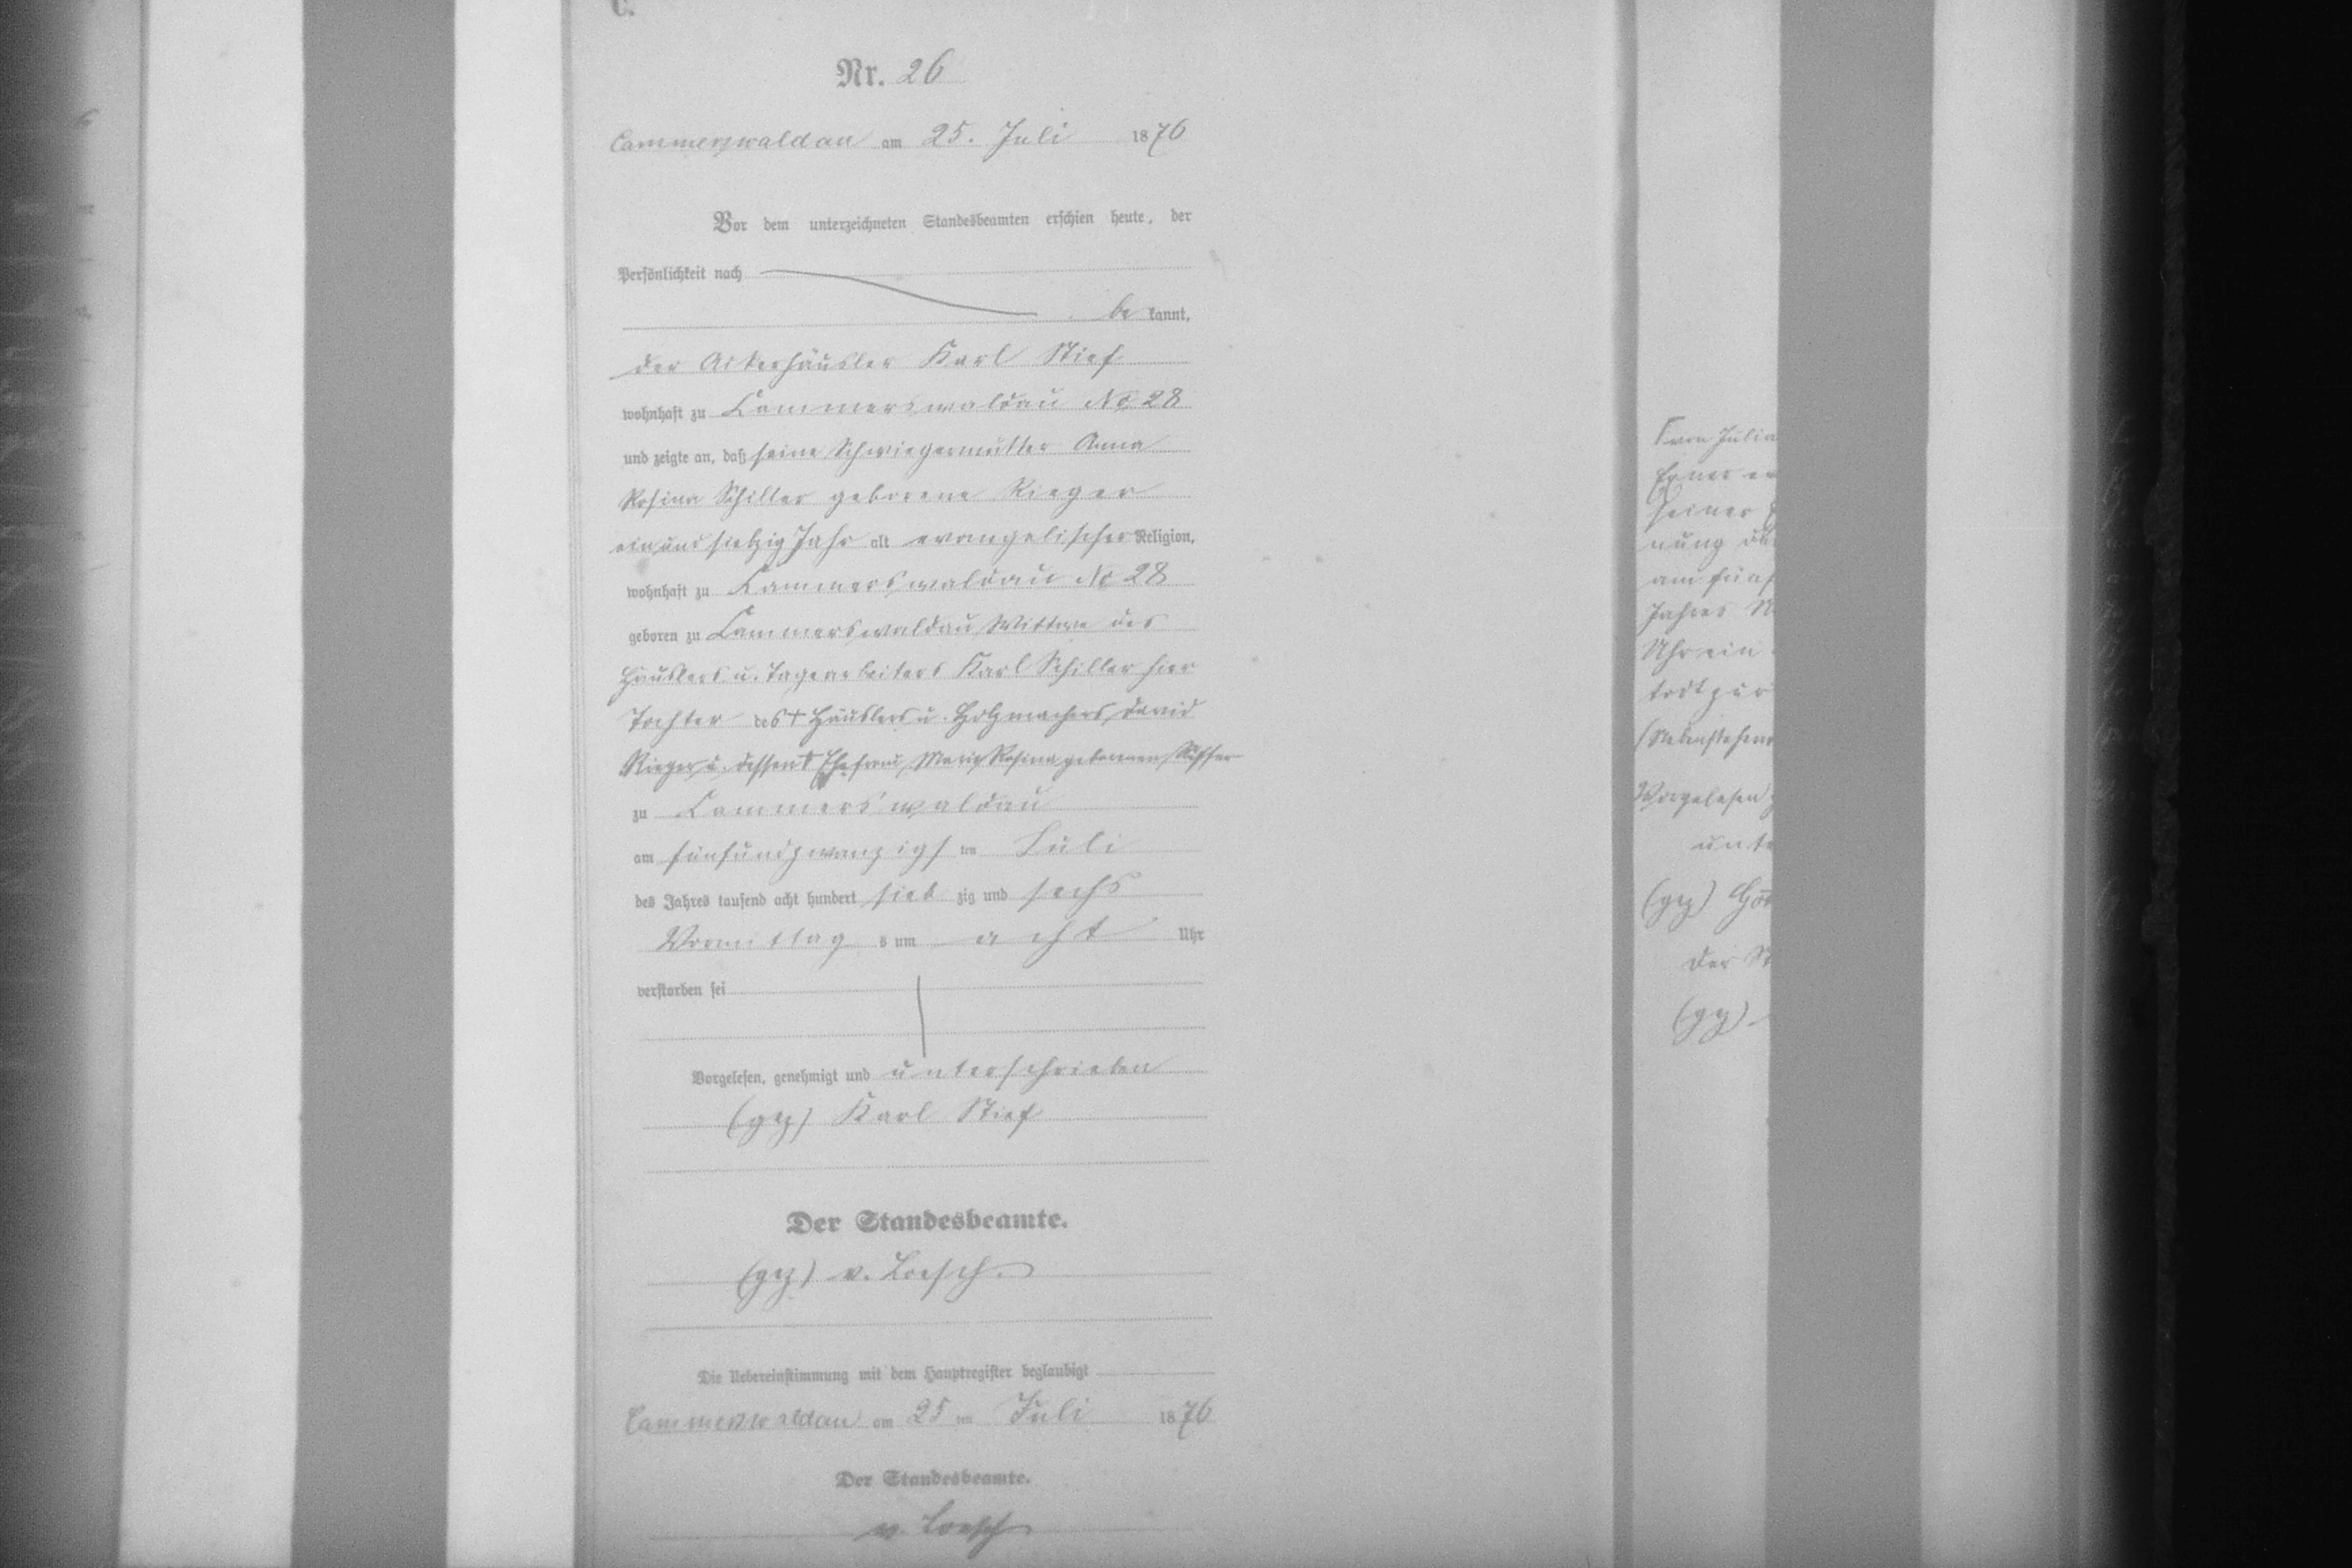 C.
Nr. 26
Cammerswaldau am 25. Juli 1876
Vor dem unterzeichneten Standesbeamten erschien heute, der
Persönlichkeit nach
be kannt,
der Ackerhäusler Karl Stief
wohnhaft zu Cammerswaldau No 28
und zeigte an, daß seine Schwiegermutter Anna
Rosina Schiller geborene Rieger
ein und siebzig Jahr alt evangelischer Religion,
wohnhaft zu Cammerswaldau No 28
geboren zu Cammerswaldau, Wittwe des
Häuslers u. Tagearbeiters Karl Schiller hier
Tochter des † Häuslers u. Holzmachers, David
Rieger u. dessen † Ehefrau, Maria Rosina geborenen
zu Cammerswaldau
am fünfundzwanzigs ten Juli
des Jahres tausend acht hundert sieb zig und sechs
Vormittag s um acht Uhr
verstorben sei
Vorgelesen, genehmigt und unterschrieben
(gez) Karl Stief
Der Standesbeamte.
(gez) v. Loesch.
Die Uebereinstimmung mit dem Hauptregister beglaubigt
Cammerswaldau am 25 ten Juli 1876
Der Standesbeamte.
v. Loesch
von Julia
seiner
nung
am fünf
Jahres
Uhr ein
todt
Vorgelesen
unte
(gez)
Der St
(gez)